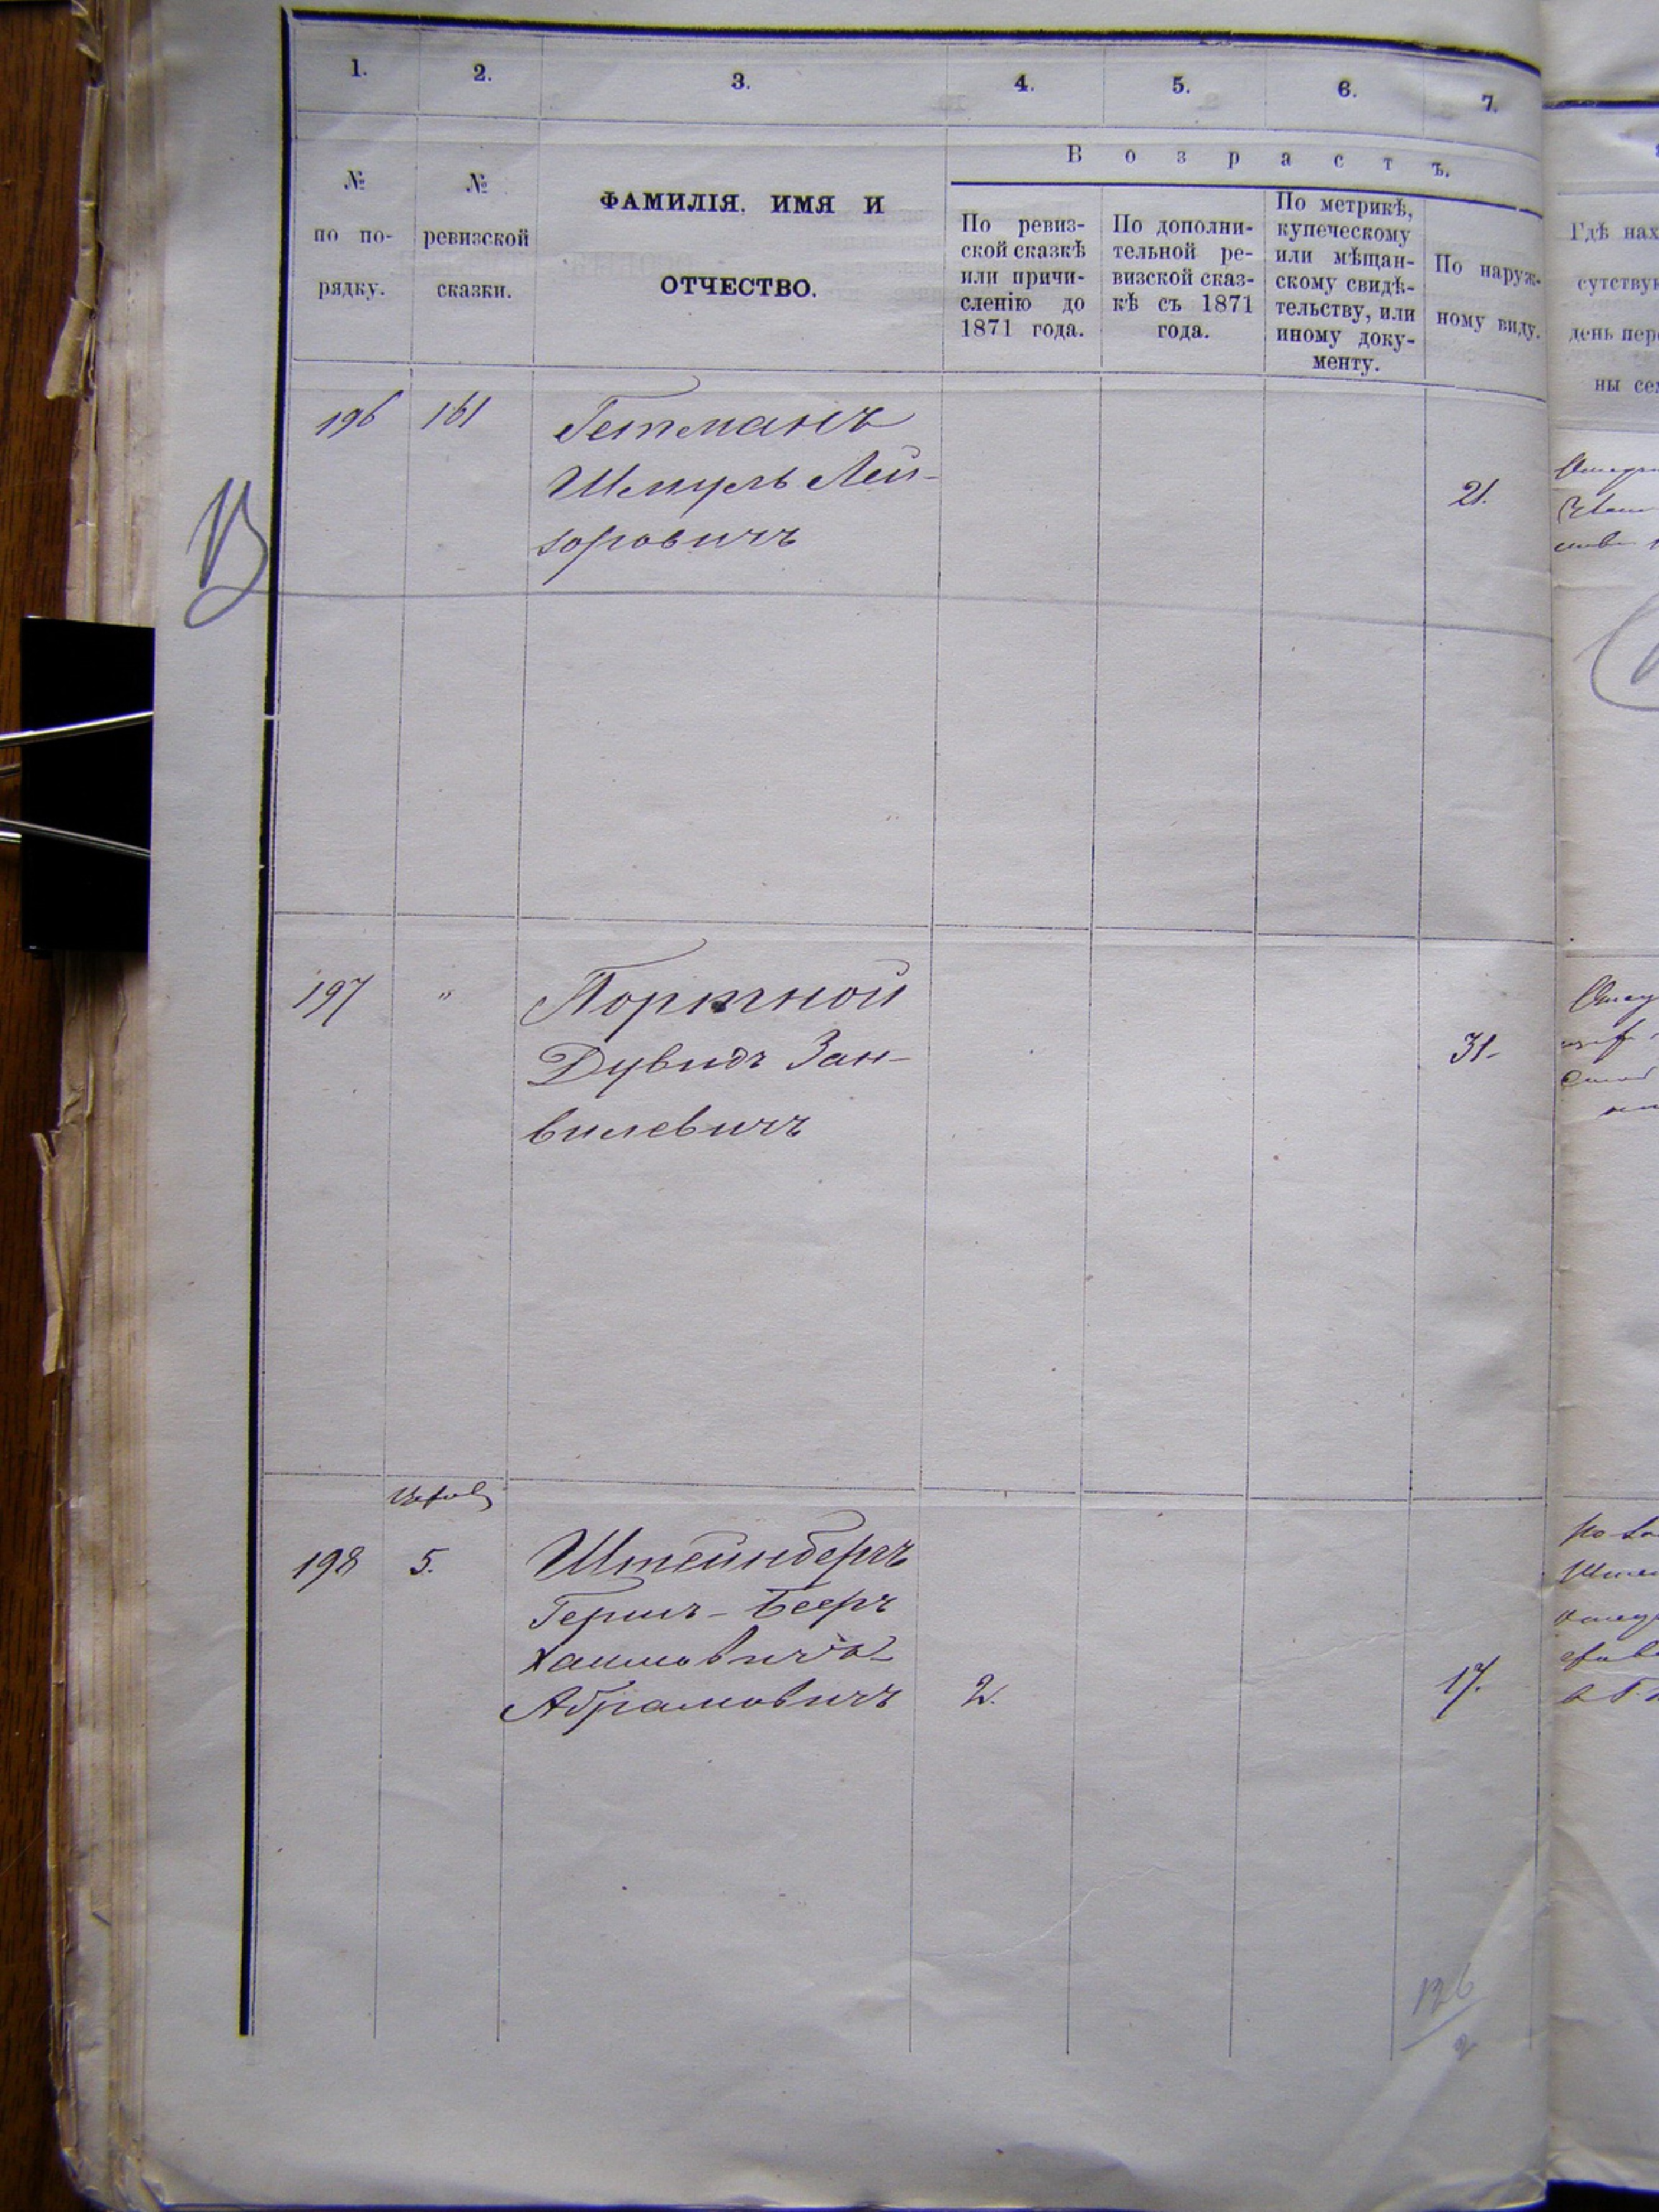 1. 2. 3. 4. 5. 6. 7.
№ по порядку.
№ ревизской сказки.
ФАМИЛІЯ, ИМЯ И
ОТЧЕСТВО.
Возрастъ.
По ревиз-
ской сказкѣ
или причи-
сленію до
1871 года.
По дополни-
тельной ре-
визской сказ-
кѣ съ 1871
года.
По метрикѣ,
купеческому
или мѣщан-
скому свидѣ-
тельству, или
иному доку-
менту.
По наруж-
ному виду.
Гдѣ нах
сутствую
день пер
ны се
196 161 Гетманъ
Шмуль Лей-
зоровичъ
21.
197 " Портной
Дувидъ Зан-
вилевичъ
31
198 5. Штейнбергъ
Гершъ-Беръ
Хаимовичъ
Абрамовичъ 2. 17.
126
2